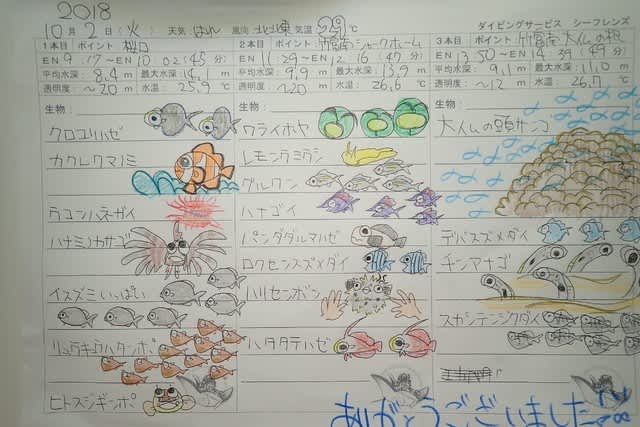 2018
10月2日(火) 天気 はれ 風向 北北東 気温 29℃ ダイビングサービス シーフレンズ
1本目 ポイント 桜口
EN 9:17~EN 10:02(45分)
平均水深: 8.4m 最大水深: 14.1m
透明度: ~20m 水温: 25.9℃
生物:
クロユリハゼ
カクレクマノミ
ウコンハネガイ
ハナミノカサゴ
イスズミいっぱい
リュウキュウハタンポ
ヒトスジギンポ
2本目 ポイント 竹富南シャークホーム
EN 11:29~EN 12:16(47分)
平均水深: 9.9m 最大水深: 13.9m
透明度: ~20m 水温: 26.6℃
生物:
ワライボヤ
レモンウミウシ
グルクン
ハナゴイ
パンダダルマハゼ
ロクセンスズメダイ
ハリセンボン
ハタタテハゼ
3本目 ポイント 竹富南大仏の根
EN 13:50~EN 14:39(49分)
平均水深: 9.1m 最大水深: 11.0m
透明度: ~12m 水温: 26.7℃
生物:
大仏の頭サンゴ
デバスズメダイ
チンアナゴ
スカシテンジクダイ
ありがとうございました!!